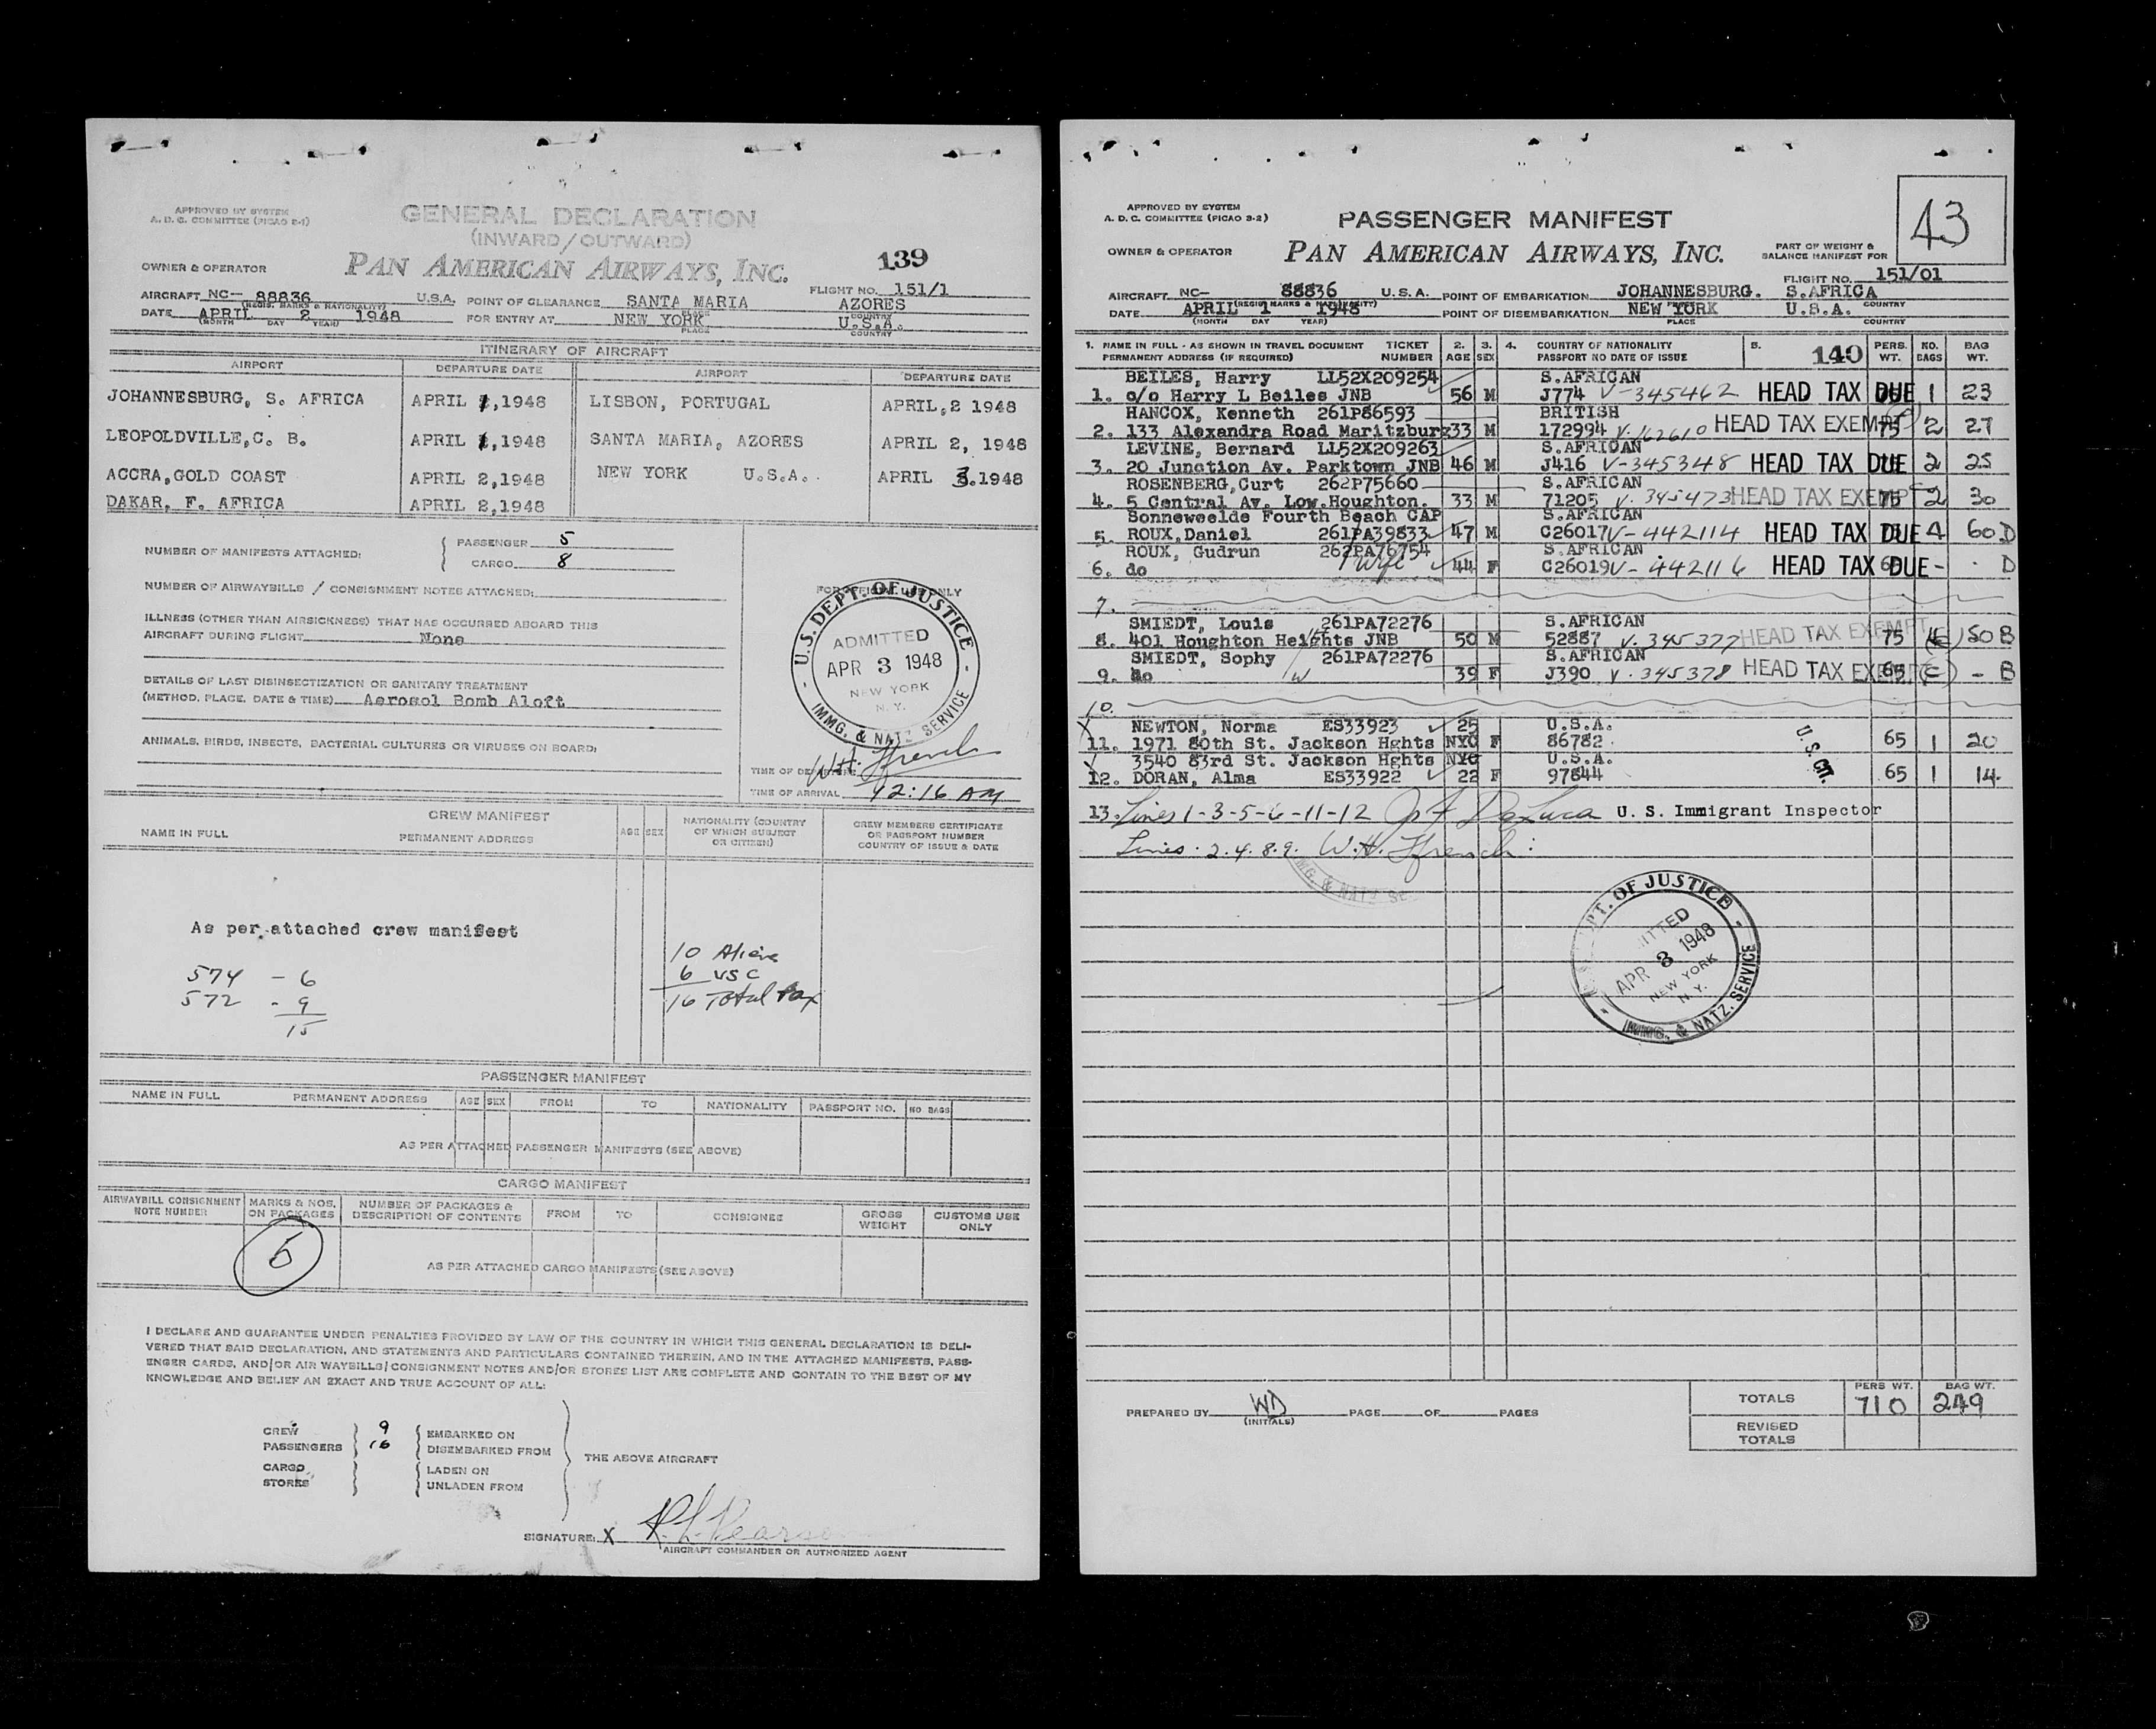 APPROVED BY SYSTEM
A. D. C. COMMITTEE (PICAO 3-1)
GENERAL DECLARATION
(INWARD/OUTWARD)
139
OWNER & OPERATOR PAN AMERICAN AIRWAYS, INC.
FLIGHT NO. 151/1
AIRCRAFT NC- 88836 U.S.A. POINT OF CLEARANCE SANTA MARIA AZORES
(REGIS. MARKS & NATIONALITY) PLACE COUNTRY
DATE APRIL 2 1948 FOR ENTRY AT NEW YORK U.S.A.
(MONTH DAY YEAR) PLACE COUNTRY
ITINERARY OF AIRCRAFT
AIRPORT DEPARTURE DATE AIRPORT DEPARTURE DATE
JOHANNESBURG, S. AFRICA APRIL 1,1948 LISBON, PORTUGAL APRIL,2 1948
LEOPOLDVILLE,C. B. APRIL 1,1948 SANTA MARIA, AZORES APRIL 2, 1948
ACCRA,GOLD COAST APRIL 2,1948 NEW YORK U.S.A. APRIL 3.1948
DAKAR, F. AFRICA APRIL 2,1948
NUMBER OF MANIFESTS ATTACHED: PASSENGER 5
CARGO 8
NUMBER OF AIRWAYBILLS / CONSIGNMENT NOTES ATTACHED:
FOR OFFICIAL USE ONLY
ILLNESS (OTHER THAN AIRSICKNESS) THAT HAS OCCURRED ABOARD THIS
AIRCRAFT DURING FLIGHT None
DETAILS OF LAST DISINSECTIZATION OR SANITARY TREATMENT
(METHOD, PLACE, DATE & TIME) Aerosol Bomb Aloft
ANIMALS, BIRDS, INSECTS, BACTERIAL CULTURES OR VIRUSES ON BOARD:
U.S. DEPT. OF JUSTICE
ADMITTED
APR 3 1948
NEW YORK
N. Y.
IMMG. & NATZ SERVICE
W.H. Ffrench
TIME OF DEPARTURE
TIME OF ARRIVAL 12:16 AM
CREW MANIFEST
NAME IN FULL PERMANENT ADDRESS AGE SEX NATIONALITY (COUNTRY OF WHICH SUBJECT OR CITIZEN) CREW MEMBERS CERTIFICATE OR PASSPORT NUMBER COUNTRY OF ISSUE & DATE
As per attached crew manifest
574 - 6
572 - 9
15
10 Aliens
6 USC
16 Total Pax
PASSENGER MANIFEST
NAME IN FULL PERMANENT ADDRESS AGE SEX FROM TO NATIONALITY PASSPORT NO. NO BAGS
AS PER ATTACHED PASSENGER MANIFESTS (SEE ABOVE)
CARGO MANIFEST
AIRWAYBILL CONSIGNMENT NOTE NUMBER MARKS & NOS. ON PACKAGES NUMBER OF PACKAGES & DESCRIPTION OF CONTENTS FROM TO CONSIGNEE GROSS WEIGHT CUSTOMS USE ONLY
AS PER ATTACHED CARGO MANIFESTS (SEE ABOVE)
I DECLARE AND GUARANTEE UNDER PENALTIES PROVIDED BY LAW OF THE COUNTRY IN WHICH THIS GENERAL DECLARATION IS DELI-
VERED THAT SAID DECLARATION, AND STATEMENTS AND PARTICULARS CONTAINED THEREIN, AND IN THE ATTACHED MANIFESTS, PASS-
ENGER CARDS, AND/OR AIR WAYBILLS/CONSIGNMENT NOTES AND/OR STORES LIST ARE COMPLETE AND CONTAIN TO THE BEST OF MY
KNOWLEDGE AND BELIEF AN EXACT AND TRUE ACCOUNT OF ALL:
CREW 9 EMBARKED ON
PASSENGERS 16 DISEMBARKED FROM
THE ABOVE AIRCRAFT
CARGO LADEN ON
STORES UNLADEN FROM
SIGNATURE: X R.L. Pearson
AIRCRAFT COMMANDER OR AUTHORIZED AGENT
APPROVED BY SYSTEM
A. D. C. COMMITTEE (PICAO 3-2)
PASSENGER MANIFEST
43
OWNER & OPERATOR PAN AMERICAN AIRWAYS, INC.
PART OF WEIGHT &
BALANCE MANIFEST FOR
FLIGHT NO. 151/01
AIRCRAFT NC- 88836 U.S.A. POINT OF EMBARKATION JOHANNESBURG. S.AFRICA
(REGIS MARKS & NATIONALITY) PLACE COUNTRY
DATE APRIL 1 1948 POINT OF DISEMBARKATION NEW YORK U.S.A.
(MONTH DAY YEAR) PLACE COUNTRY
1. NAME IN FULL - AS SHOWN IN TRAVEL DOCUMENT TICKET 2. 3. 4. COUNTRY OF NATIONALITY 5. 140 PERS. NO. BAG
PERMANENT ADDRESS (IF REQUIRED) NUMBER AGE SEX PASSPORT NO DATE OF ISSUE WT. BAGS WT.
BEILES, Harry LL52X209254 S.AFRICAN
1. c/o Harry L Beiles JNB 56 M J774 V-345462 HEAD TAX DUE 1 23
HANCOX, Kenneth 261P86593 BRITISH
2. 133 Alexandra Road Maritzburg 33 M 172994 V.162610 HEAD TAX EXEMPT 75 2 27
LEVINE, Bernard LL52X209263 S.AFRICAN
3. 20 Junction Av. Parktown JNB 46 M J416 V-345348 HEAD TAX DUE 2 25
ROSENBERG,Curt 262P75660 S.AFRICAN
4. 5 Central Av. Low.Houghton. 33 M 71205 V. 345473 HEAD TAX EXEMPT 75 2 30
Sonneweelde Fourth Beach CAP S.AFRICAN
5. ROUX,Daniel 261PA39833 47 M C26017 V-442114 HEAD TAX DUE 4 60 D
ROUX, Gudrun 262PA76754 S.AFRICAN
6. do Wife 44 F C26019 V-442116 HEAD TAX DUE - - D
7.
SMIEDT, Louis 261PA72276 S.AFRICAN
8. 401 Houghton Heights JNB 50 M 52887 V.345377 HEAD TAX EXEMPT 75 50 B
SMIEDT, Sophy 261PA72276 S.AFRICAN
9. do W 39 F J390 V.345378 HEAD TAX EXEMPT 65 - B
10.
X NEWTON, Norma ES33923 25 U.S.A.
11. 1971 80th St. Jackson Hghts NYC F 86782 65 1 20
U.S. CIT.
3540 83rd St. Jackson Hghts NYC U.S.A.
12. DORAN, Alma ES33922 22 F 97844 65 1 14
13. Lines 1-3-5-6-11-12 U. S. Immigrant Inspector
Lines. 2.4.8.9. W.H. Ffrench
IMG. & NATZ SE
DEPT. OF JUSTICE
ADMITTED
APR 3 1948
NEW YORK
N. Y.
IMMG. & NATZ. SERVICE
PREPARED BY WD PAGE OF PAGES
(INITIALS)
PERS WT. BAG WT.
TOTALS 710 249
REVISED
TOTALS